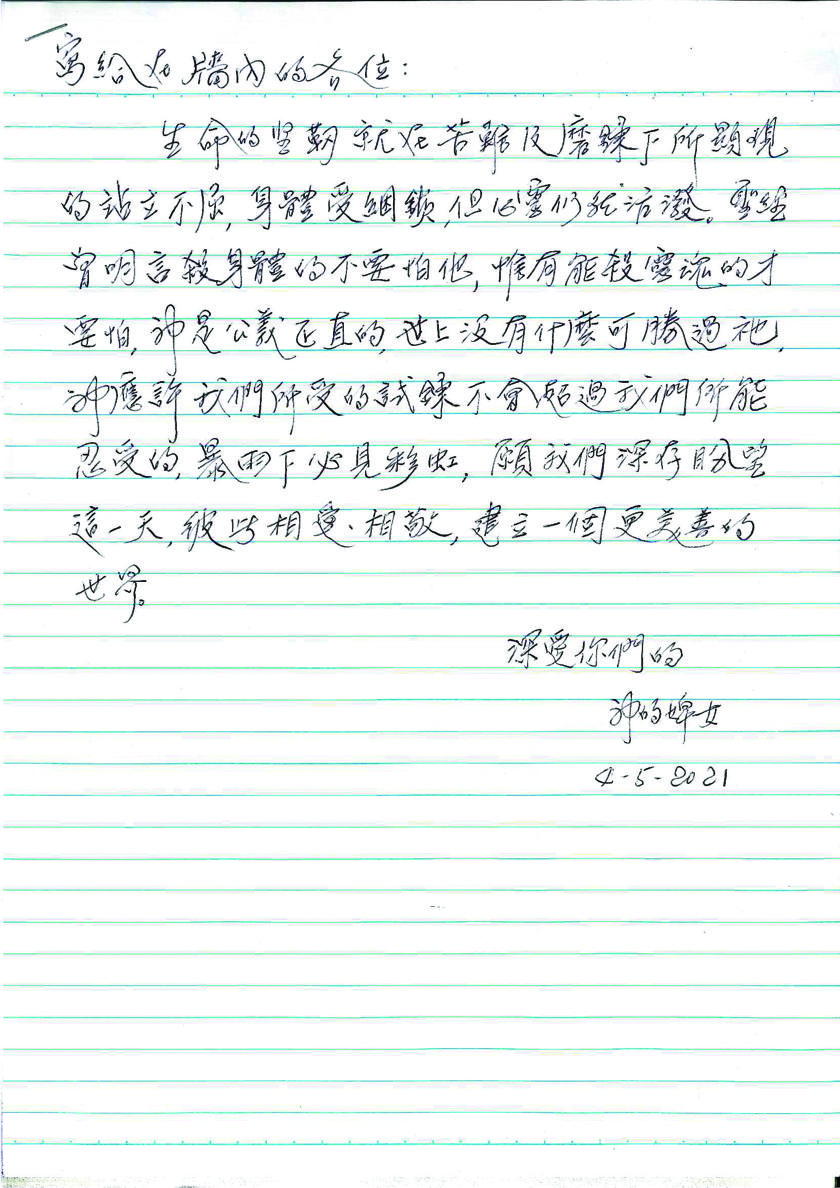 寫給在牆內的各位：
生命的坚韌就在苦難及磨鍊下所顯現
的站立不屈，身體受綑鎖，但心靈仍然活潑。聖經
曾明言殺身體的不要怕他，惟有能殺靈魂的才
要怕，神是公義正直的，世上没有什麼可勝過祂，
神應許我們所受的試鍊不會超過我們所能
忍受的，暴雨下必見彩虹，願我們深存盼望
這一天，彼此相愛、相敬，建立一個更美善的
世界。
深愛你們的
神的婢女
4-5-2021